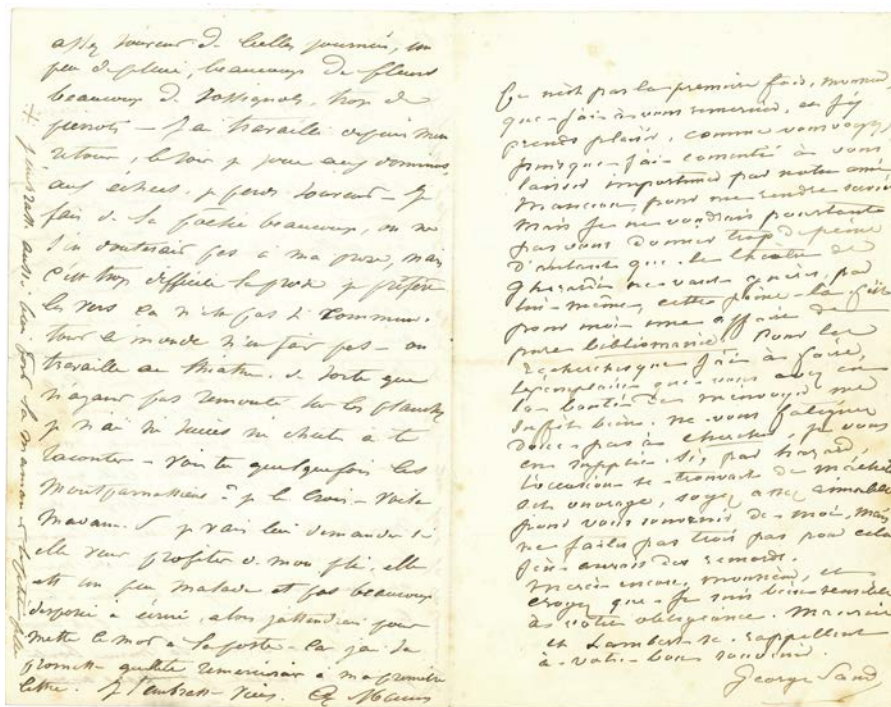 assez souvent de belles journées, un
peu de pluie, beaucoup de fleurs
beaucoup de rossignols, trop de
pierrots – J'ai travaillé depuis mon
retour, le soir je joue aux dominos,
aux échecs, je perds souvent – Je
fais de la poésie beaucoup, on ne
s'en douterait pas à ma prose, mais
c'est trop difficile la prose je préfère
les vers ça n'est pas si commun.
tout le monde n'en fait pas – on
travaille au théâtre. de sorte que
n'ayant pas remonté sur les planches
je n'ai ni succès ni chute à te
raconter – vois tu quelquefois les
je le crois – voilà
je vais lui demander si
elle veut profiter de mon pli, elle
est un peu malade et pas beaucoup
disposée à écrire, alors j'attendrai pour
mettre le mot à la poste – car j'ai
promesse qu'elle remercierait à ma première
lettre. Je t'embrasse
+ j'embrasse aussi bien fort la maman et la petite fille
Ce n'est pas la première fois, monsieur
que j'ai à vous remercier, et j'y
prends plaisir, comme vous voyez,
puisque j'ai consenti à vous
laisser importuner par notre ami
Manceau, pour me rendre service
Mais je ne voudrais pourtant
pas vous donner trop de peine
d'autant que le théâtre de
Gherardi ne vaut guères, par
lui-même, cette peine-là
pour moi une affaire de
pure bibliomanie. Pour les
recherches que j'ai à faire,
l'exemplaire que vous avez eu
la bonté de m'envoyer me
suffit bien. ne vous fatiguez
donc pas à chercher, je vous
en supplie. Si, par hazard,
l'occasion se trouvait de
cet ouvrage, soyez assez aimable
pour vous souvenir de moi, mais
ne faites pas trois pas pour cela
j'en aurais des remords.
Merci encore, monsieur, et
croyez que je suis bien sensible
à votre obligeance. Maurice
et Lambert se rappellent
à votre bon souvenir.
George Sand